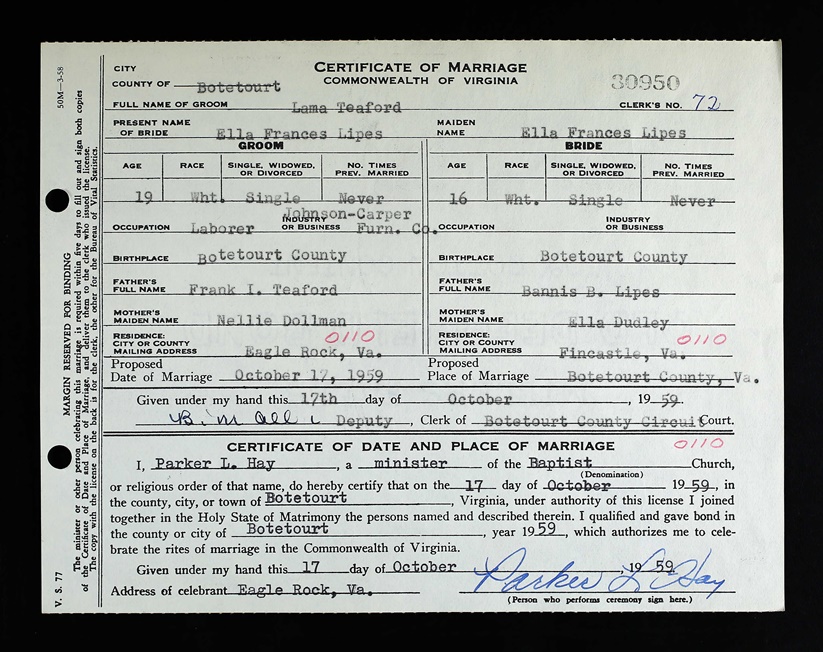 CITY
CERTIFICATE OF MARRIAGE
COMMONWEALTH OF VIRGINIA
30950
COUNTY OF Botetourt
FULL NAME OF GROOM Lama Teaford CLERK'S NO. 72
PRESENT NAME OF BRIDE Ella Frances Lipes MAIDEN NAME Ella Frances Lipes
GROOM BRIDE
AGE RACE SINGLE, WIDOWED, OR DIVORCED NO. TIMES PREV. MARRIED AGE RACE SINGLE, WIDOWED, OR DIVORCED NO. TIMES PREV. MARRIED
19 Wht. Single Never 16 Wht. Single Never
OCCUPATION Laborer INDUSTRY OR BUSINESS Johnson-Carper Furn. Co. OCCUPATION INDUSTRY OR BUSINESS
BIRTHPLACE Botetourt County BIRTHPLACE Botetourt County
FATHER'S FULL NAME Frank I. Teaford FATHER'S FULL NAME Bannis B. Lipes
MOTHER'S MAIDEN NAME Nellie Dollman MOTHER'S MAIDEN NAME Ella Dudley
RESIDENCE: CITY OR COUNTY 0110 RESIDENCE: CITY OR COUNTY 0110
MAILING ADDRESS Eagle Rock, Va. MAILING ADDRESS Fincastle, Va.
Proposed Date of Marriage October 17, 1959 Proposed Place of Marriage Botetourt County, Va.
Given under my hand this 17th day of October, 1959.
Deputy, Clerk of Botetourt County Circuit Court.
CERTIFICATE OF DATE AND PLACE OF MARRIAGE 0110
I, Parker L. Hay, a minister of the Baptist Church,
(Denomination)
or religious order of that name, do hereby certify that on the 17 day of October 1959, in
the county, city, or town of Botetourt, Virginia, under authority of this license I joined
together in the Holy State of Matrimony the persons named and described therein. I qualified and gave bond in
the county or city of Botetourt, year 1959, which authorizes me to cele-
brate the rites of marriage in the Commonwealth of Virginia.
Given under my hand this 17 day of October, 1959.
Parker L. Hay
Address of celebrant Eagle Rock, Va.
(Person who performs ceremony sign here.)
50M—3-58
MARGIN RESERVED FOR BINDING
The minister or other person celebrating this marriage is required within five days to fill out and sign both copies
of the Certificate of Date and Place of Marriage, and deliver them to the clerk who issued the license.
The copy with the license on the back is for the clerk, the other for the Bureau of Vital Statistics.
V. S. 77